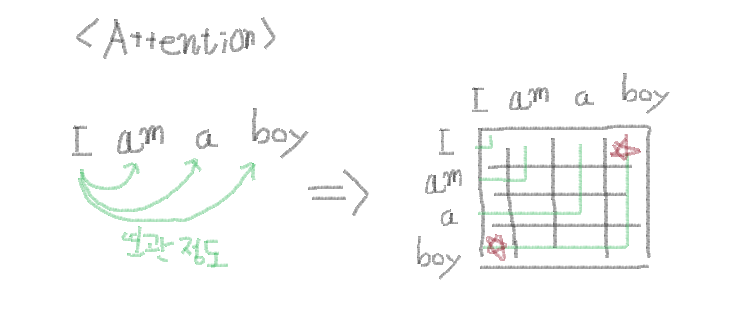 <Attention>
I am a boy
연관 정도
=>
I am a boy
I
am
a
boy